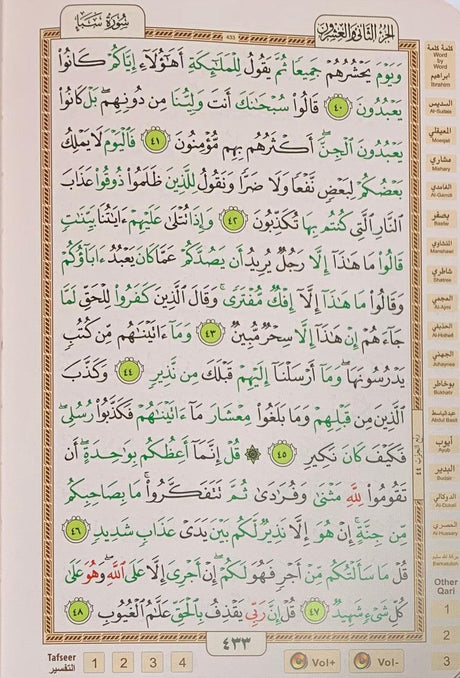 سُورَةُ سَبَإٍ
433
الجُزْءُ الثَّانِي وَالعِشْرُونَ
وَيَوْمَ يَحْشُرُهُمْ جَمِيعًا ثُمَّ يَقُولُ لِلْمَلَٰٓئِكَةِ أَهَٰٓؤُلَآءِ إِيَّاكُمْ كَانُوا۟
يَعْبُدُونَ ٤٠ قَالُوا۟ سُبْحَٰنَكَ أَنتَ وَلِيُّنَا مِن دُونِهِم ۖ بَلْ كَانُوا۟
يَعْبُدُونَ ٱلْجِنَّ ۖ أَكْثَرُهُم بِهِم مُّؤْمِنُونَ ٤١ فَٱلْيَوْمَ لَا يَمْلِكُ
بَعْضُكُمْ لِبَعْضٍ نَّفْعًا وَلَا ضَرًّا وَنَقُولُ لِلَّذِينَ ظَلَمُوا۟ ذُوقُوا۟ عَذَابَ
ٱلنَّارِ ٱلَّتِى كُنتُم بِهَا تُكَذِّبُونَ ٤٢ وَإِذَا تُتْلَىٰ عَلَيْهِمْ ءَايَٰتُنَا بَيِّنَٰتٍ
قَالُوا۟ مَا هَٰذَآ إِلَّا رَجُلٌ يُرِيدُ أَن يَصُدَّكُمْ عَمَّا كَانَ يَعْبُدُ ءَابَآؤُكُمْ
وَقَالُوا۟ مَا هَٰذَآ إِلَّآ إِفْكٌ مُّفْتَرًى ۚ وَقَالَ ٱلَّذِينَ كَفَرُوا۟ لِلْحَقِّ لَمَّا
جَآءَهُمْ إِنْ هَٰذَآ إِلَّا سِحْرٌ مُّبِينٌ ٤٣ وَمَآ ءَاتَيْنَٰهُم مِّن كُتُبٍ
يَدْرُسُونَهَا ۖ وَمَآ أَرْسَلْنَآ إِلَيْهِمْ قَبْلَكَ مِن نَّذِيرٍ ٤٤ وَكَذَّبَ
ٱلَّذِينَ مِن قَبْلِهِمْ وَمَا بَلَغُوا۟ مِعْشَارَ مَآ ءَاتَيْنَٰهُمْ فَكَذَّبُوا۟ رُسُلِى ۖ
فَكَيْفَ كَانَ نَكِيرِ ٤٥ ۞ قُلْ إِنَّمَآ أَعِظُكُم بِوَٰحِدَةٍ ۖ أَن
تَقُومُوا۟ لِلَّهِ مَثْنَىٰ وَفُرَٰدَىٰ ثُمَّ تَتَفَكَّرُوا۟ ۚ مَا بِصَاحِبِكُم
مِّن جِنَّةٍ ۚ إِنْ هُوَ إِلَّا نَذِيرٌ لَّكُم بَيْنَ يَدَىْ عَذَابٍ شَدِيدٍ ٤٦
قُلْ مَا سَأَلْتُكُم مِّنْ أَجْرٍ فَهُوَ لَكُمْ ۖ إِنْ أَجْرِىَ إِلَّا عَلَى ٱللَّهِ ۖ وَهُوَ عَلَىٰ
كُلِّ شَىْءٍ شَهِيدٌ ٤٧ قُلْ إِنَّ رَبِّى يَقْذِفُ بِٱلْحَقِّ عَلَّٰمُ ٱلْغُيُوبِ ٤٨
٤٣٣
كلمة كلمة
Word
by
Word
ابراهيم
Ibrahim
السديس
Al-Sudais
المعيقلي
Moeqail
مشاري
Mishary
الغامدي
Al-Gamdi
بصفر
Basfar
المنشاوي
Manshawi
شاطري
Shatree
العجمي
Al-Ajmi
الحذيفي
Al-Hothefi
الجهني
Johaynee
بوخاطر
Bukhatir
عبدالباسط
Abdul Basit
أيوب
Ayub
البدير
Budair
الدوكالي
Al-Dukali
الحصري
Al-Hussary
Other
Qari
1
2
3
Tafseer
التفسير
1 2 3 4
Vol+
Vol-